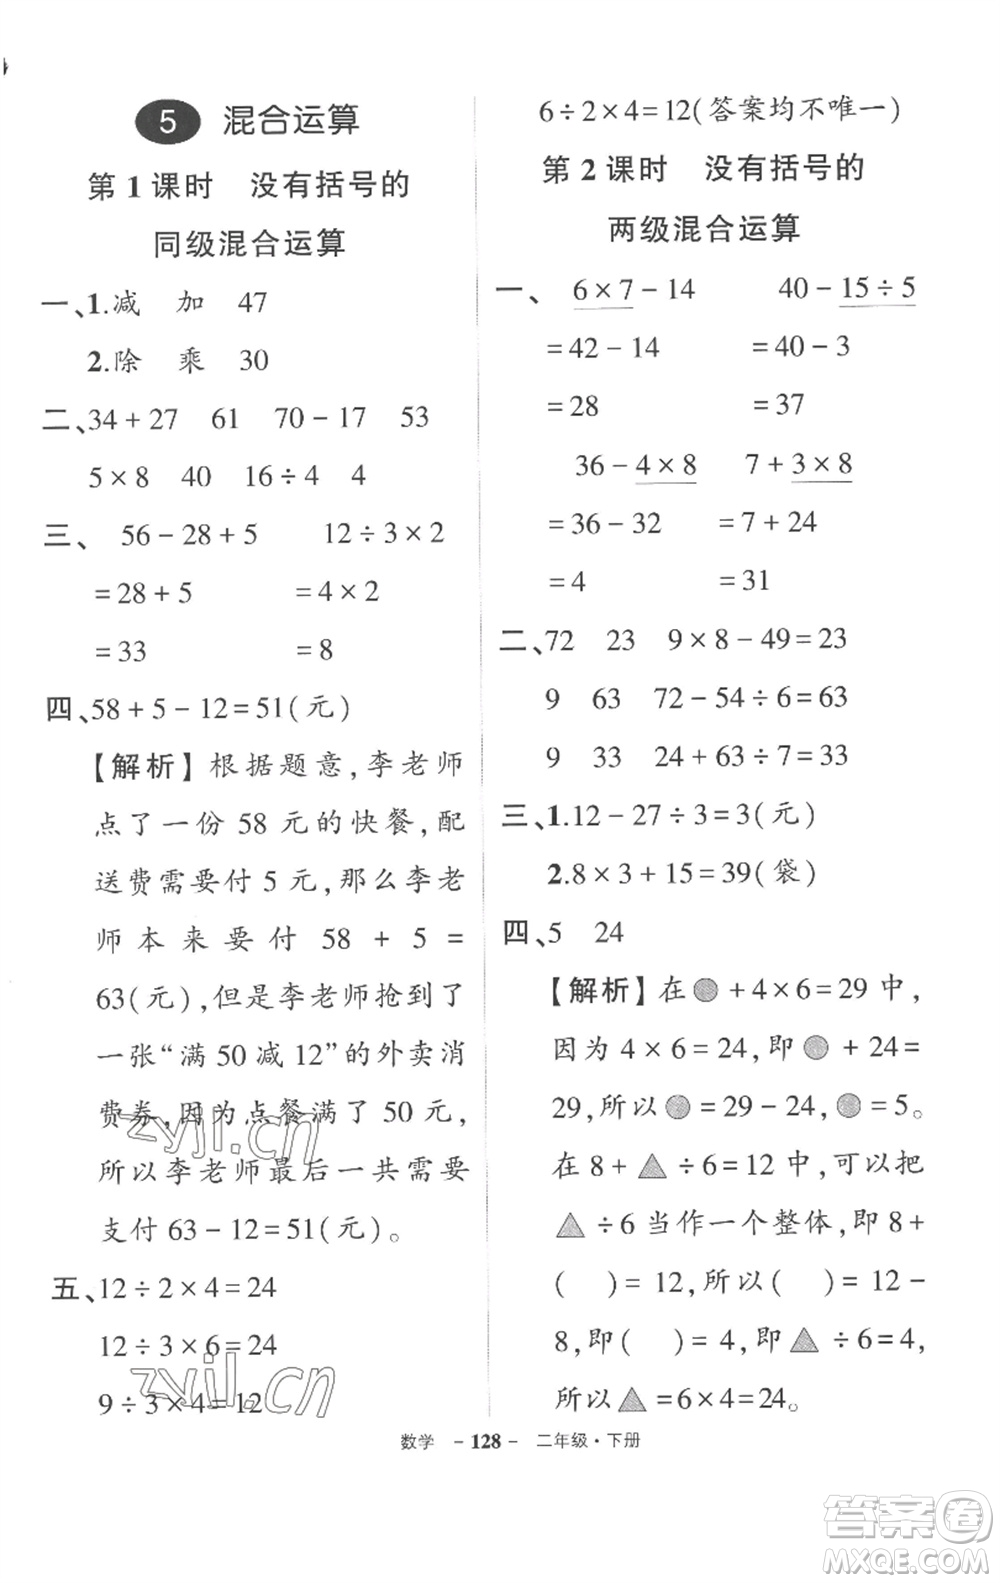 5 混合运算
第 1 课时 没有括号的
同级混合运算
一、1.减 加 47
2.除 乘 30
二、34+27 61 70-17 53
5×8 40 16÷4 4
三、 56-28+5 12÷3×2
=28+5 =4×2
=33 =8
四、58+5-12=51(元)
【解析】根据题意,李老师
点了一份 58 元的快餐,配
送费需要付 5 元,那么李老
师本来要付 58 + 5 =
63(元),但是李老师抢到了
一张“满 50 减 12”的外卖消
费券,因为点餐满了 50 元,
所以李老师最后一共需要
支付 63-12=51(元)。
五、12÷2×4=24
12÷3×6=24
9÷3×4=12
6÷2×4=12(答案均不唯一)
第 2 课时 没有括号的
两级混合运算
一、 6×7-14 40-15÷5
=42-14 =40-3
=28 =37
36-4×8 7+3×8
=36-32 =7+24
=4 =31
二、72 23 9×8-49=23
9 63 72-54÷6=63
9 33 24+63÷7=33
三、1.12-27÷3=3(元)
2.8×3+15=39(袋)
四、5 24
【解析】在●+4×6=29 中,
因为 4×6=24,即●+24=
29,所以●=29-24,●=5。
在 8+▲÷6=12 中,可以把
▲÷6 当作一个整体,即 8+
( )=12,所以( )=12-
8,即( )=4,即▲÷6=4,
所以▲=6×4=24。
数学 -128- 二年级·下册
zyjl.cn
zyjl.cn
答案卷
MXQE.COM